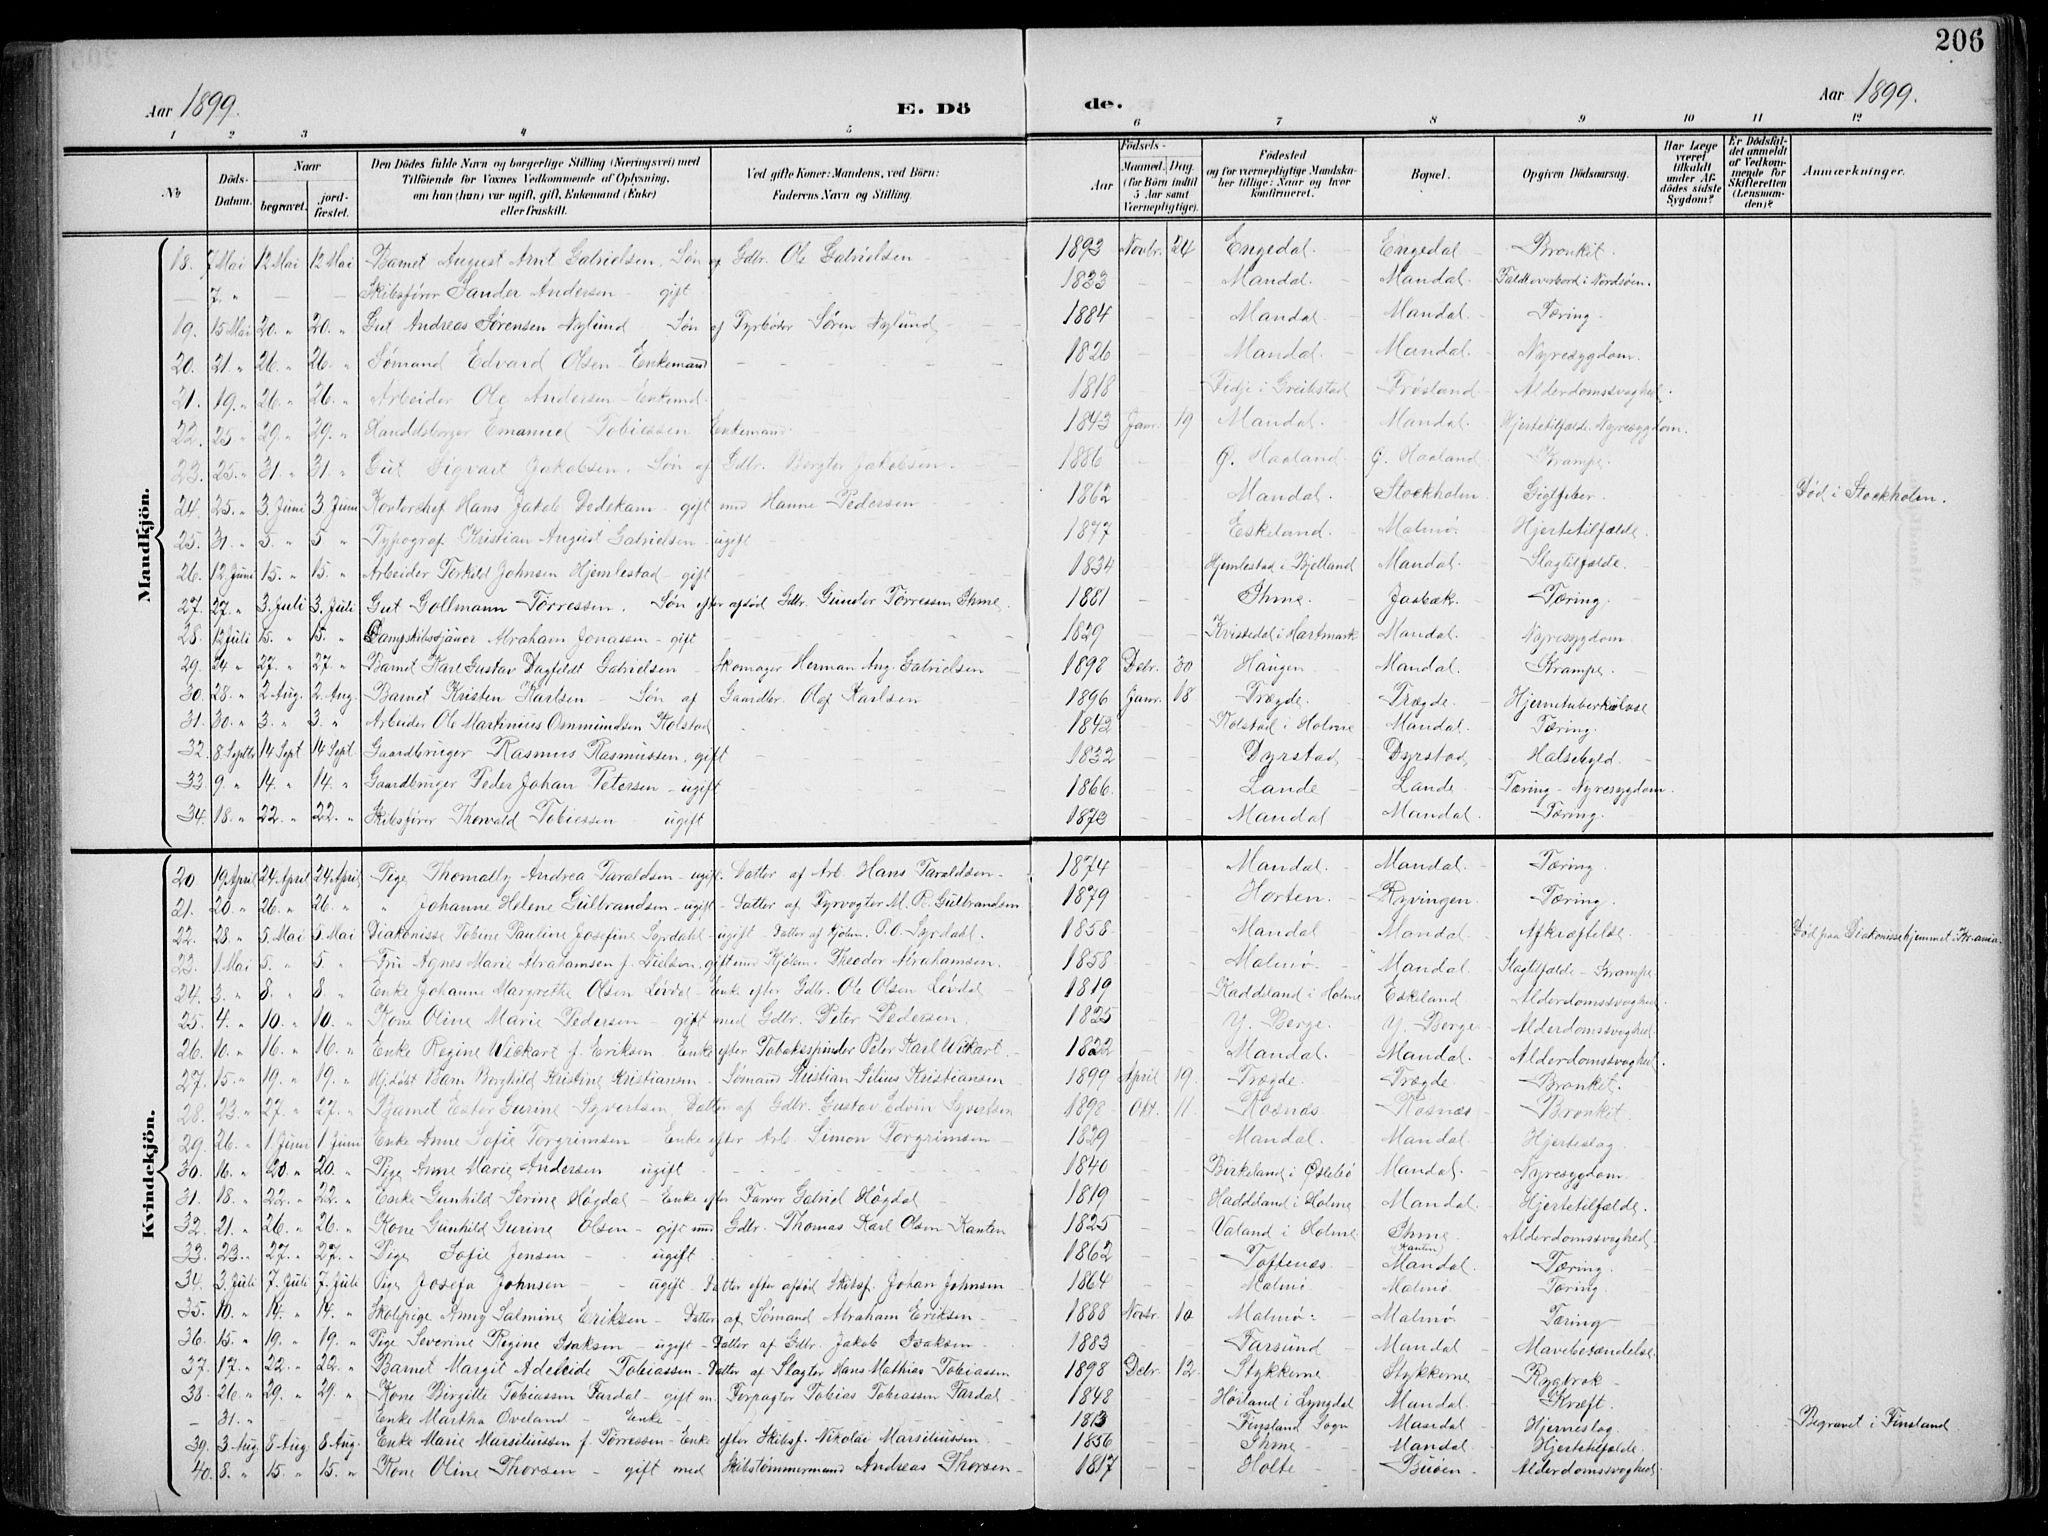 206
Aar 1899. E. Dö de. Aar 1899.
1 2 3 4 5 6 7 8 9 10 11 12
No. Döds-Datum. Naar begravet. jordfæstet. Den Dödes fulde Navn og borgerlige Stilling (Næringsvei) med Tilföiende for Voxnes Vedkommende af Oplysning, om han (hun) var ugift, gift, Enkemand (Enke) eller fraskilt. Ved gifte Koner: Mandens, ved Börn: Faderens Navn og Stilling. Födsels- Aar Maaned. Dag. (for Börn indtil 5 Aar samt Værnepligtige). Födested og for værnepligtige Mandskaber tillige: Naar og hvor konfirmeret. Bopæl. Opgiven Dödsaarsag. Har Læge været tilkaldt under Afdödes sidste Sygdom? Er Dödsfaldet anmeldt af Vedkommende for Skifteretten (Lensmanden)? Anmærkninger.
Mandkjön.
18. 7 Mai 12 Mai 12 Mai Barnet August Arnt Gabrielsen. Søn af Gdbr. Ole Gabrielsen 1893 Novbr. 24 Engedal. Engedal Bronkit.
— 7. " — — Skibsfører Sander Andersen — gift 1833 Mandal. Mandal. Faldt overbord i Nordsøen.
19. 15 Mai 20. " 20. " Gut Andreas Sørensen Nylund Søn af Fyrbøder Søren Nylund 1884 Mandal. Mandal. Tæring.
20. 21 " 26. " 26. " Sømand Edvard Olsen — Enkemand 1826 Mandal. Mandal. Nyresygdom.
21. 19. " 26. " 26. " Arbeider Ole Andersen — Enkemd. 1818 Fidje i Greibstad Frøsland Alderdomssvaghed.
22. 25 " 29. " 29. " Handelsborger Emanuel Tobiessen Enkemand. 1843 Janr. 19 Mandal. Mandal. Hjertetilfælde. Nyresygdom.
23. 25. " 31. " 31. " Gut Sigvart Jakobsen. Søn af Gdbr. Bergter Jakobsen. 1886 Ø. Haaland Ø. Haaland Krampe.
24. 25. " 3. Juni 3. Juni Kontorchef Hans Jakob Dedekam — gift med Hanne Pedersen 1862 Mandal. Stockholm. Gigtfeber. Død i Stockholm.
25. 31. " 5. " 5 " Typograf Kristian August Gabrielsen — ugift 1877 Eskeland. Malmø. Hjertetilfælde.
26. 12. Juni 15. " 15. " Arbeider Terkild Johnsen Hjemlestad — gift 1834 Hjemlestad i Bjelland Mandal. Slagtilfælde.
27. 27. " 3. Juli 3. Juli Gut Gottmann Tørressen. Søn efter afdød Gdbr. Gunder Tørressen Ihme. 1881 Ihme. Jaabæk. Tæring.
28. 12 Juli 15. " 15. " Dampskibssjauer Abraham Jonassen — gift 1829 Kvistedal i Hartmark Mandal. Nyresygdom
29. 24 " 27. " 27. " Barnet Karl Gustav Dagfeldt Gabrielsen — Skomager Herman Aug. Gabrielsen 1898 Debr. 30 Haugen Mandal. Krampe.
30. 28. " 2 Aug. 2. Aug. Barnet Kristen Karlsen — Søn af Gaardbr. Olaf Karlsen 1896 Janr. 18 Trægde. Trægde. Hjernetuberkulose
31. 30. " 3. " 3. " Arbeider Ole Martinius Osmundsen Kolstad 1842 Kolstad i Holme Mandal. Tæring.
32. 8 Septbr 14 Sept. 14 Sept. Gaardbruger Rasmus Rasmussen. gift 1832 Dyrstad Dyrstad Halsebyld.
33. 9 " 14. " 14. " Gaardbruger Peder Johan Petersen — ugift 1866 Lande Lande. Tæring — Nyresygdom.
34. 18. " 22. " 22. " Skibsfører Thorvald Tobiessen ugift 1873 Mandal Mandal. Tæring.
Kvindekjön.
20 19 April 24 April 24 April Pige Thomally Andrea Taraldsen — ugift. Datter af Arb. Hans Taraldsen. 1874 Mandal. Mandal. Tæring.
21. 20. " 26. " 26. " " Johanne Helene Gulbrandsen — ugift — Datter af Fyrvogter M. P. Gulbrandsen 1879 Horten. Ryvingen. Tæring.
22. 28 " 5. Mai 5. Mai Diakonisse Tobine Pauline Josefine Lyrdahl — ugift — Datter af Kjøbm. P. O. Lyrdahl. 1858. Mandal Mandal. Afkræftelse. Død paa Diakonissehjemmet. Kr.ania.
23. 1 Mai 5. " 5. " Fru Agnes Marie Abrahamsen f. Nielsen. gift med Kjøbm. Theodor Abrahamsen. 1858. Malmø. Mandal. Slagtilfælde — Krampe
24. 3. " 8. " 8. " Enke Johanne Margrethe Olsen Løvdal — Enke efter Gdbr. Ole Olsen Løvdal 1819 Kaddeland i Holme Eskeland Alderdomssvaghed.
25. 4. " 10. " 10. " Kone Oline Marie Pedersen — gift med Gdbr. Peter Pedersen. 1825 Y. Berge. Y. Berge Alderdomssvaghed.
26. 10. " 16. " 16. " Enke Regine Wickart f. Eriksen. Enke efter Tobaksspinder Peter Karl Wickart. 1822 Mandal. Mandal. Alderdomssvaghed.
27. 15. " 19. " 19. " Hj.døbt Barn Borghild Kristine Kristiansen. Sømand Kristian Silius Kristiansen 1899 April 19. Trægde. Trægde Bronket.
28. 23. " 27. " 27. " Barnet Ester Gurine Syvertsen. Datter af Gdbr. Gustav Edvin Syvertsen 1898. Okt. 11. Rosnæs. Rosnæs Bronket.
29. 26. " 1 Juni 1 Juni Enke Anne Sofie Torgrimsen — Enke efter Arb. Simon Torgrimsen 1829 Mandal. Mandal. Hjerteslag.
30. 16. " 20. " 20. " Pige Anne Marie Andersen ugift. 1840 Birkeland i Øslebø Mandal. Nyresygdom.
31. 18. " 22. " 22. " Enke Gunhild Serine Høgdal — Enke efter Farver Gabriel Høgdal 1819 Haddeland i Holme Mandal. Hjertetilfælde.
32. 21. " 26. " 26. " Kone Gunhild Gurine Olsen — gift med Gdbr. Thomas Karl Olsen Kanten 1825 Valand i Holme Ihme (Kanten) Alderdomssvaghed.
33. 23. " 27. " 27. " Pige Sofie Jensen ugift. 1862 Toftenæs. Mandal. Tæring.
34. 3 Juli 7. Juli 7. Juli Pige Josefa Johnsen — ugift. Datter efter afdød Skibsf. Johan Johnsen 1864 Malmø Malmø. Tæring.
35. 10. " 14. " 14. " Skolepige Anny Salmine Eriksen — Datter af Sømand Abraham Eriksen. 1888 Novbr. 10 Malmø. Malmø. Tæring
36. 15. " 19. " 19. " Pige Severine Regine Isaksen — ugift — Datter af Gdbr. Jakob Isaksen. 1883 Farsund Mandal Mavebetændelse.
37. 17. " 22. " 22. " Barnet Margit Adeleide Tobiassen — Datter af Slagter Hans Mathias Tobiassen 1898 Debr. 12 Stykkerne Stykkerne Rygbrok
38. 26. " 29. " 29. " Kone Birgitte Tobiassen Fardal — gift m. Forpagter Tobias Tobiassen Fardal 1848 Hørland i Lyngdal Mandal. Kræft.
— 31. " Enke Martha Øveland — Enke 1813 Finsland Sogn Mandal Hjerneslag. Begravet i Finsland
39. 3 Aug. 8 Aug. 8 Aug. Enke Marie Marsiliussen f. Tørressen — Enke efter Skibsf. Nikolai Marsiliussen. 1856 Ihme Mandal. Hjertetilfælde.
40. 8. " 15. " 15. " Kone Oline Thorsen — gift med Skibstømmermand Andreas Thorsen 1817 Holte Buøen Alderdomssvaghed.